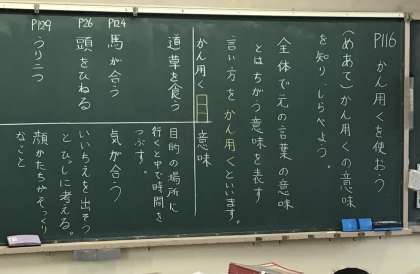 P116 かん用くを使おう
(めあて)かん用くの意味
を知り、しらべよう。
全体で元の言葉の意味
とはちがう意味を表す
言い方をかん用くといいます。
かん用く
意味
道草を食う
目的の場所に
行くと中で時間を
つぶす。
P124 馬が合う
気が合う
P26 頭をひねる
いいちえを出そう
とひっしに考える。
P129 うり二つ
顔かたちがそっくり
なこと